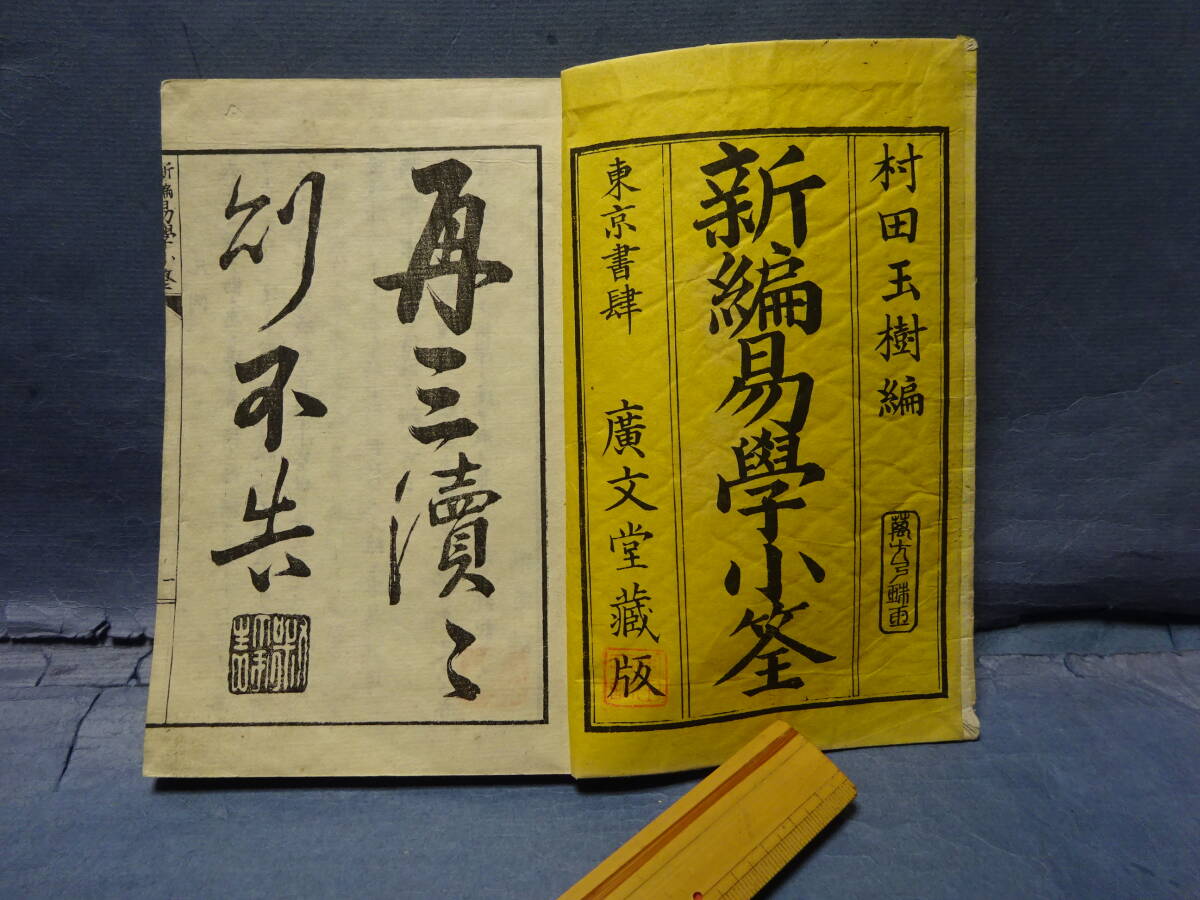 村田玉樹編
新編易學小筌
東京書肆 廣文堂藏版
再三瀆〻
則不告
新編易學小筌
一